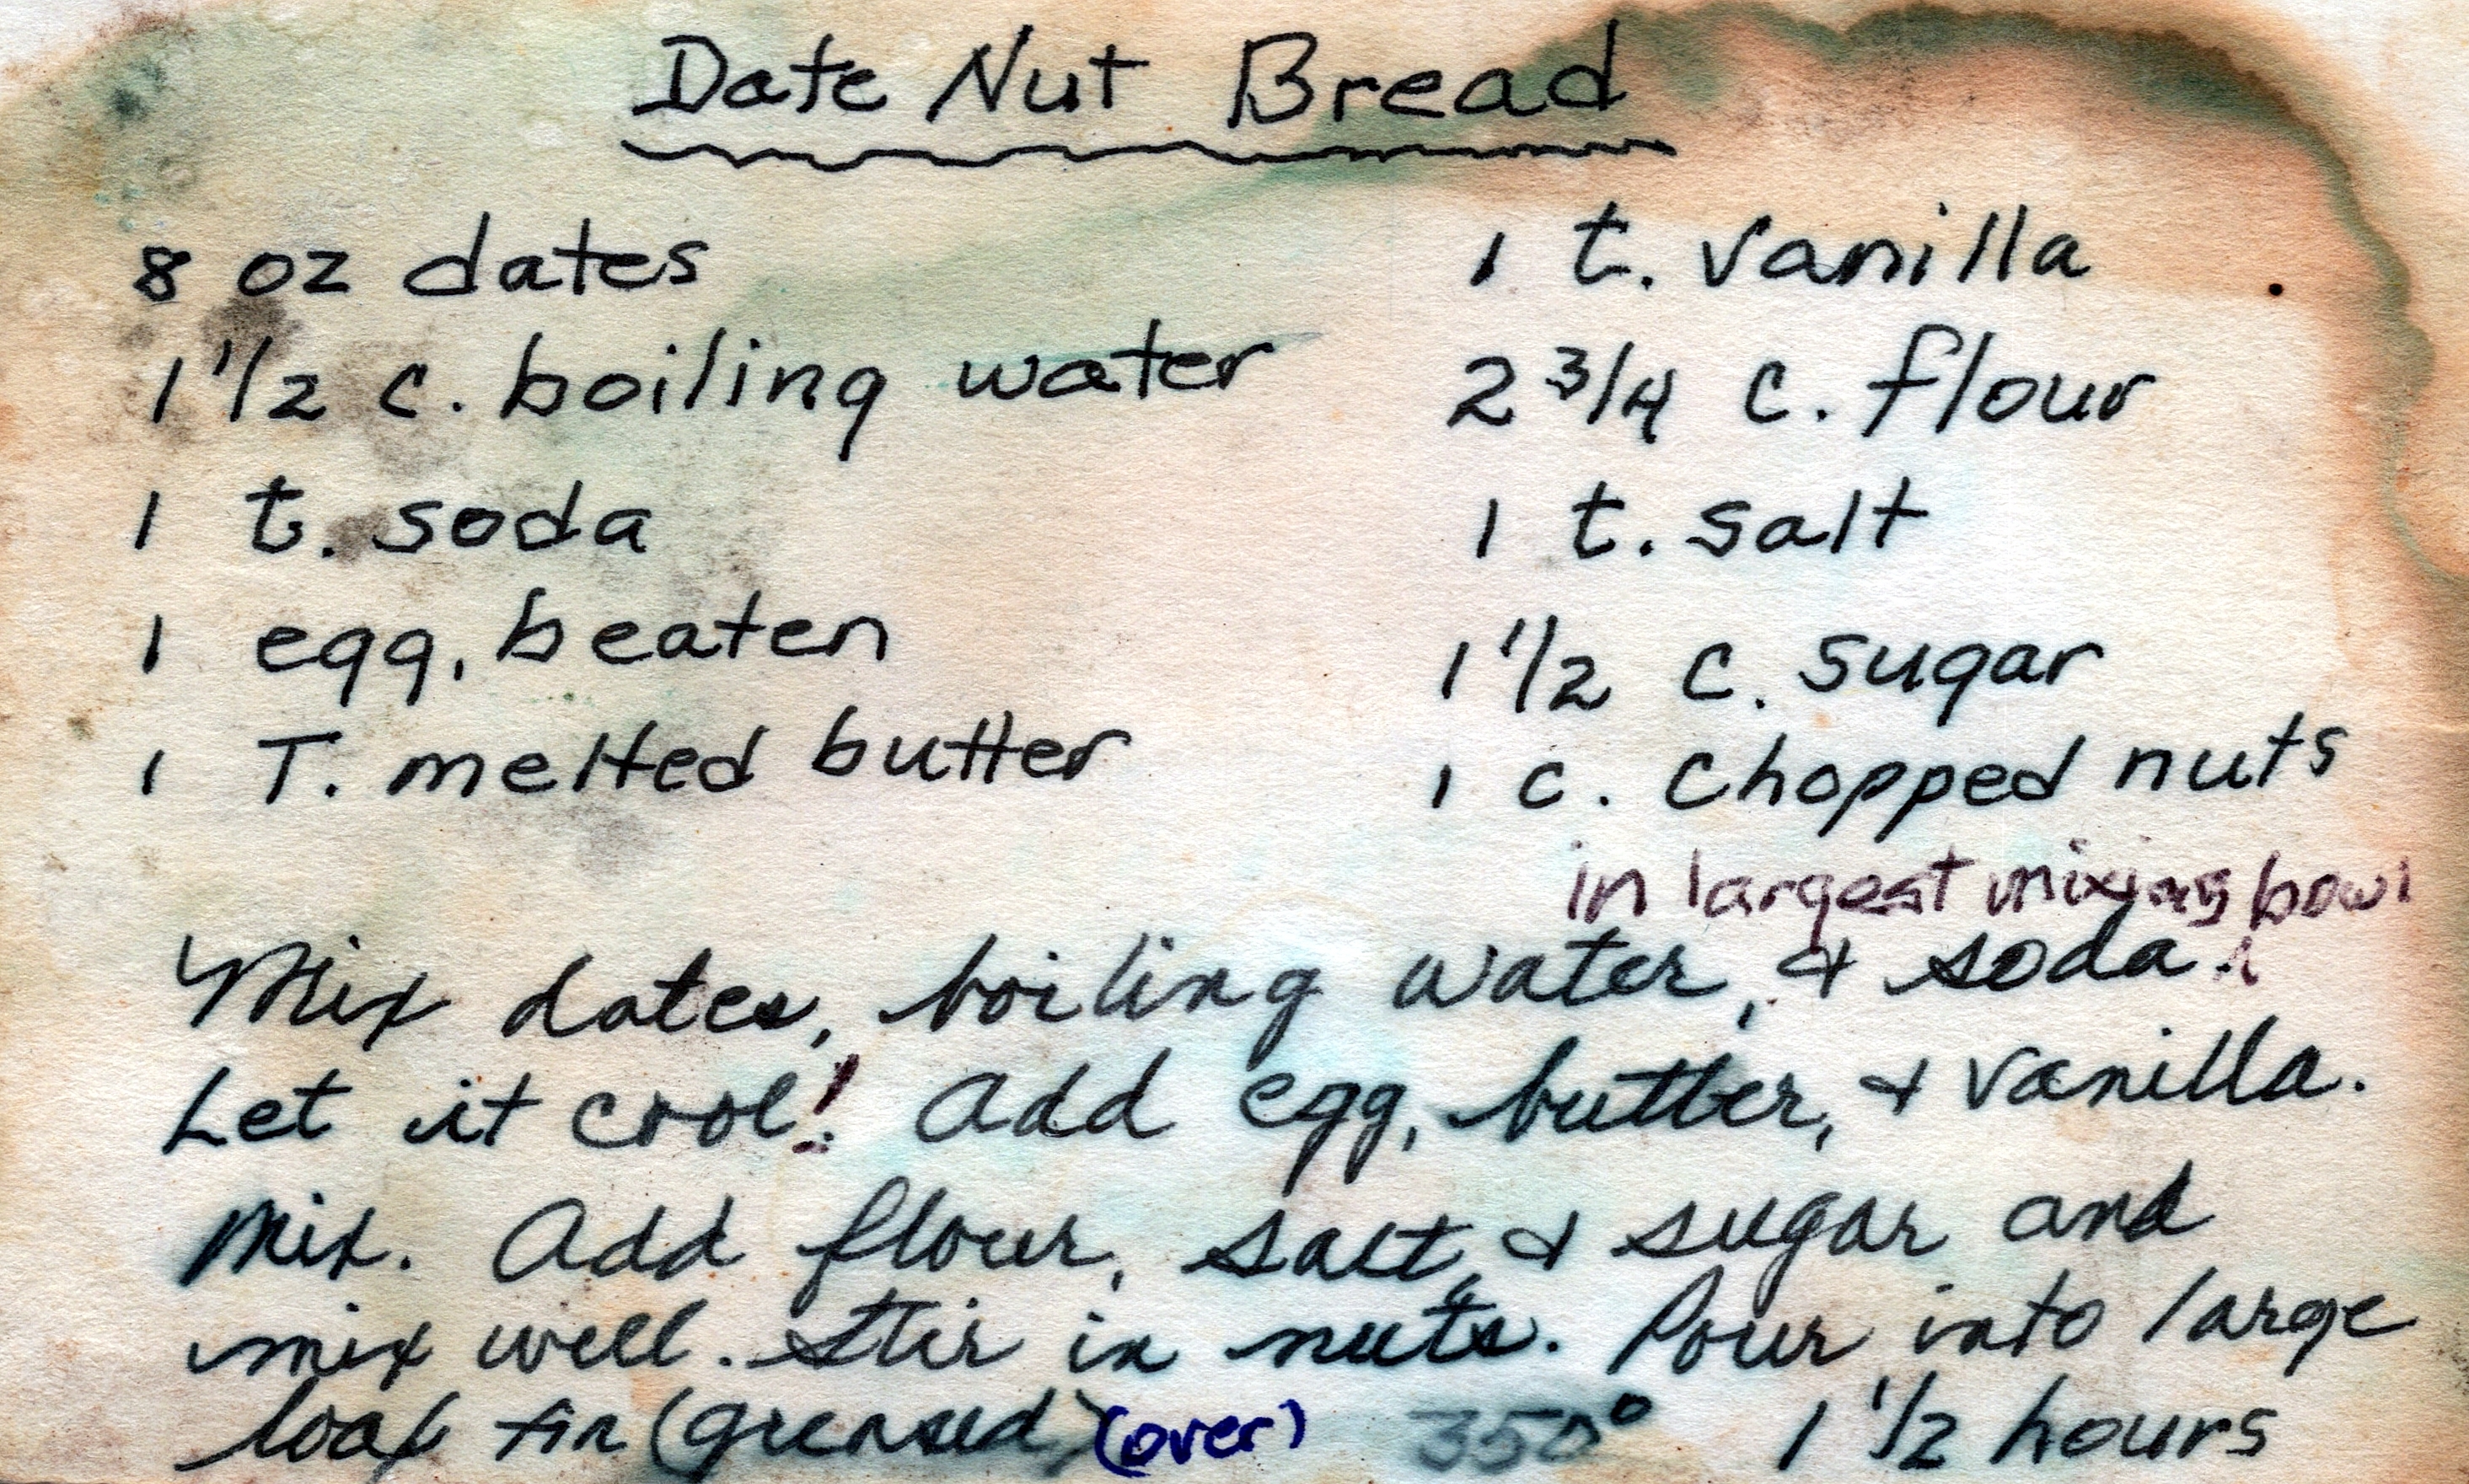 Date Nut Bread
8 oz dates
1 1/2 c. boiling water
1 t. soda
1 egg, beaten
1 T. melted butter
1 t. vanilla
2 3/4 c. flour
1 t. salt
1 1/2 c. sugar
1 c. chopped nuts
in largest mixing bowl
Mix dates, boiling water, & soda.
Let it cool! Add egg, butter, & vanilla.
Mix. Add flour, salt, & sugar and
mix well. Stir in nuts. Pour into large
loaf tin (greased) (over) 350° 1 1/2 hours